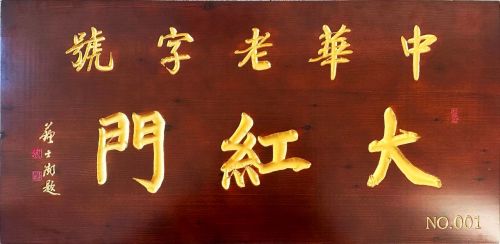 中華老字號
大紅門
蘇士澍題
NO.001